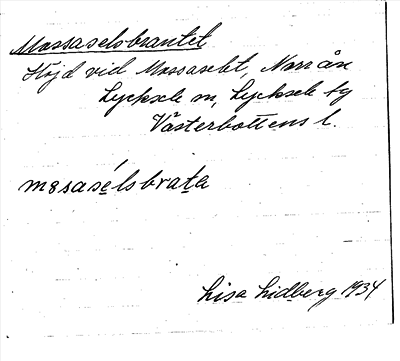 Mossaselsbrantet
Höjd vid Mossaselet, Norrån
Lycksele sn, Lycksele by
Västerbottens l.
måsasélsbrata
Lisa Lidberg 1934